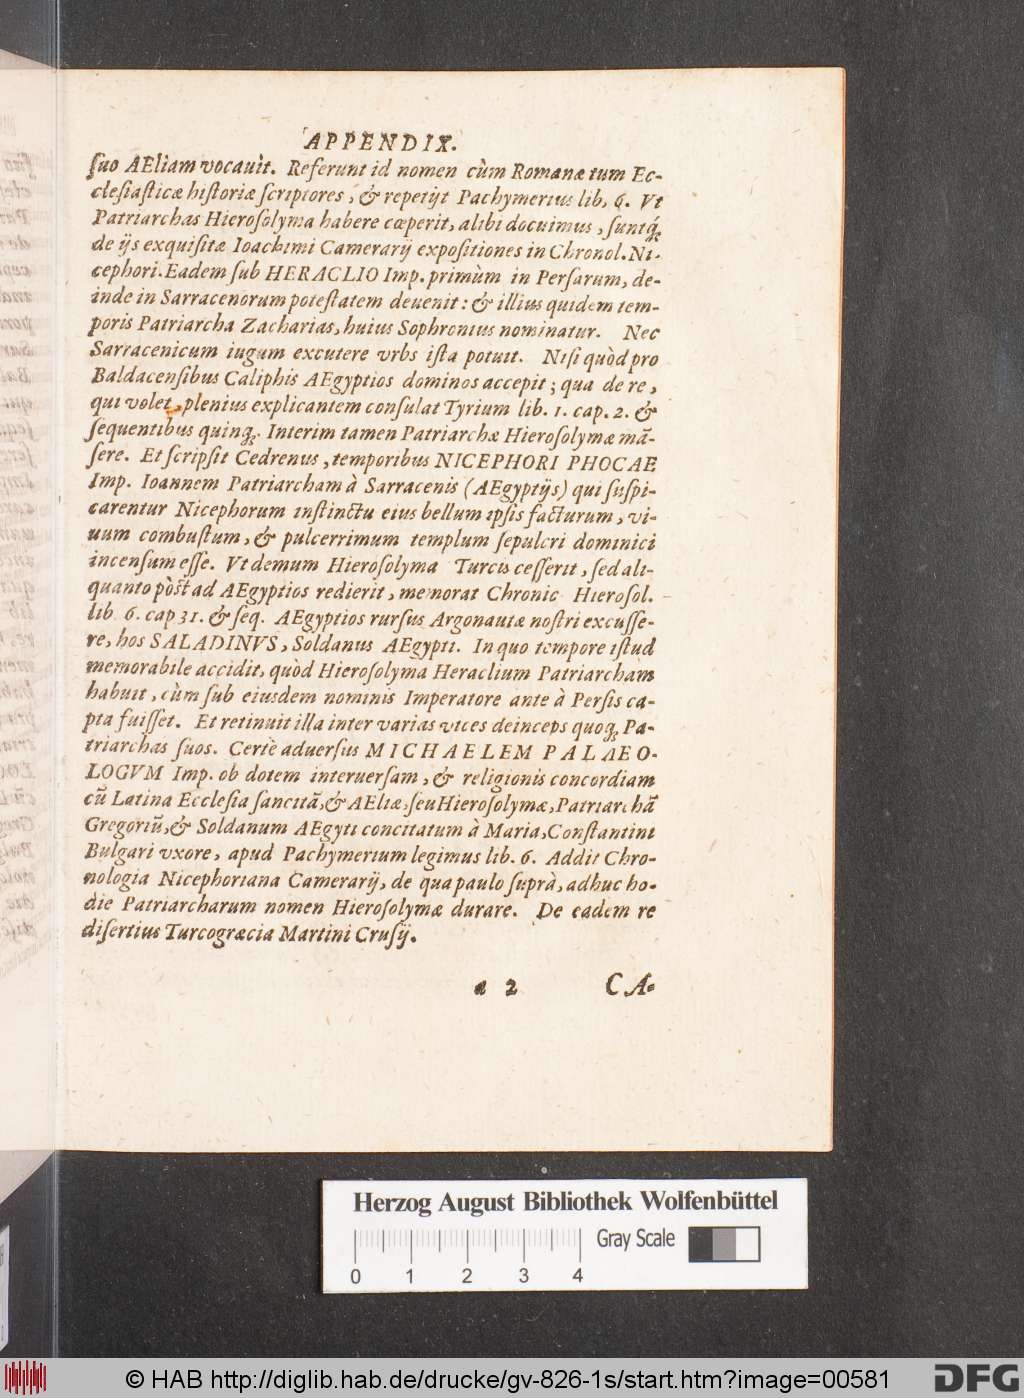 APPENDIX.
ſuo AEliam vocauit. Referunt id nomen cùm Romanæ tum Ec-
cleſiaſticæ hiſtoriæ ſcriptores, & repetijt Pachymerius lib. 6. Vt
Patriarchas Hieroſolyma habere cœperit, alibi docuimus, ſuntq́;
de ijs exquiſitæ Ioachimi Camerarij expoſitiones in Chronol. Ni-
cephori. Eadem ſub HERACLIO Imp. primùm in Perſarum, de-
inde in Sarracenorum poteſtatem deuenit: & illius quidem tem-
poris Patriarcha Zacharias, huius Sophronius nominatur. Nec
Sarracenicum iugum excutere vrbs iſta potuit. Niſi quòd pro
Baldacenſibus Caliphis AEgyptios dominos accepit; qua de re,
qui volet, plenius explicantem conſulat Tyrium lib. 1. cap. 2. &
ſequentibus quinq;. Interim tamen Patriarchæ Hieroſolymæ mã-
ſere. Et ſcripſit Cedrenus, temporibus NICEPHORI PHOCAE
Imp. Ioannem Patriarcham à Sarracenis (AEgyptijs) qui ſuſpi-
carentur Nicephorum inſtinctu eius bellum ipſis facturum, vi-
uum combuſtum, & pulcerrimum templum ſepulcri dominici
incenſum eſſe. Vt demum Hieroſolyma Turcis ceſſerit, ſed ali-
quanto pòſt ad AEgyptios redierit, memorat Chronic Hieroſol.
lib. 6. cap 31. & ſeq. AEgyptios rurſus Argonautæ noſtri excuſſe-
re, hos SALADINVS, Soldanus AEgypti. In quo tempore iſtud
memorabile accidit, quòd Hieroſolyma Heraclium Patriarcham
habuit, cùm ſub eiuſdem nominis Imperatore ante à Perſis ca-
pta fuiſſet. Et retinuit illa inter varias vices deinceps quoq; Pa-
triarchas ſuos. Certè aduerſus MICHAELEM PALAEO-
LOGVM Imp. ob dotem interuerſam, & religionis concordiam
cũ Latina Eccleſia ſancitã, & AEliæ, ſeu Hieroſolymæ, Patriarchã
Gregoriũ, & Soldanum AEgyti concitatum à Maria, Conſtantini
Bulgari vxore, apud Pachymerium legimus lib. 6. Addit Chro-
nologia Nicephoriana Camerarij, de qua paulo ſuprà, adhuc ho-
die Patriarcharum nomen Hieroſolymæ durare. De eadem re
diſertius Turcogræcia Martini Cruſij.
a 2 CA-
Herzog August Bibliothek Wolfenbüttel
0 1 2 3 4 Gray Scale
© HAB http://diglib.hab.de/drucke/gv-826-1s/start.htm?image=00581
DFG